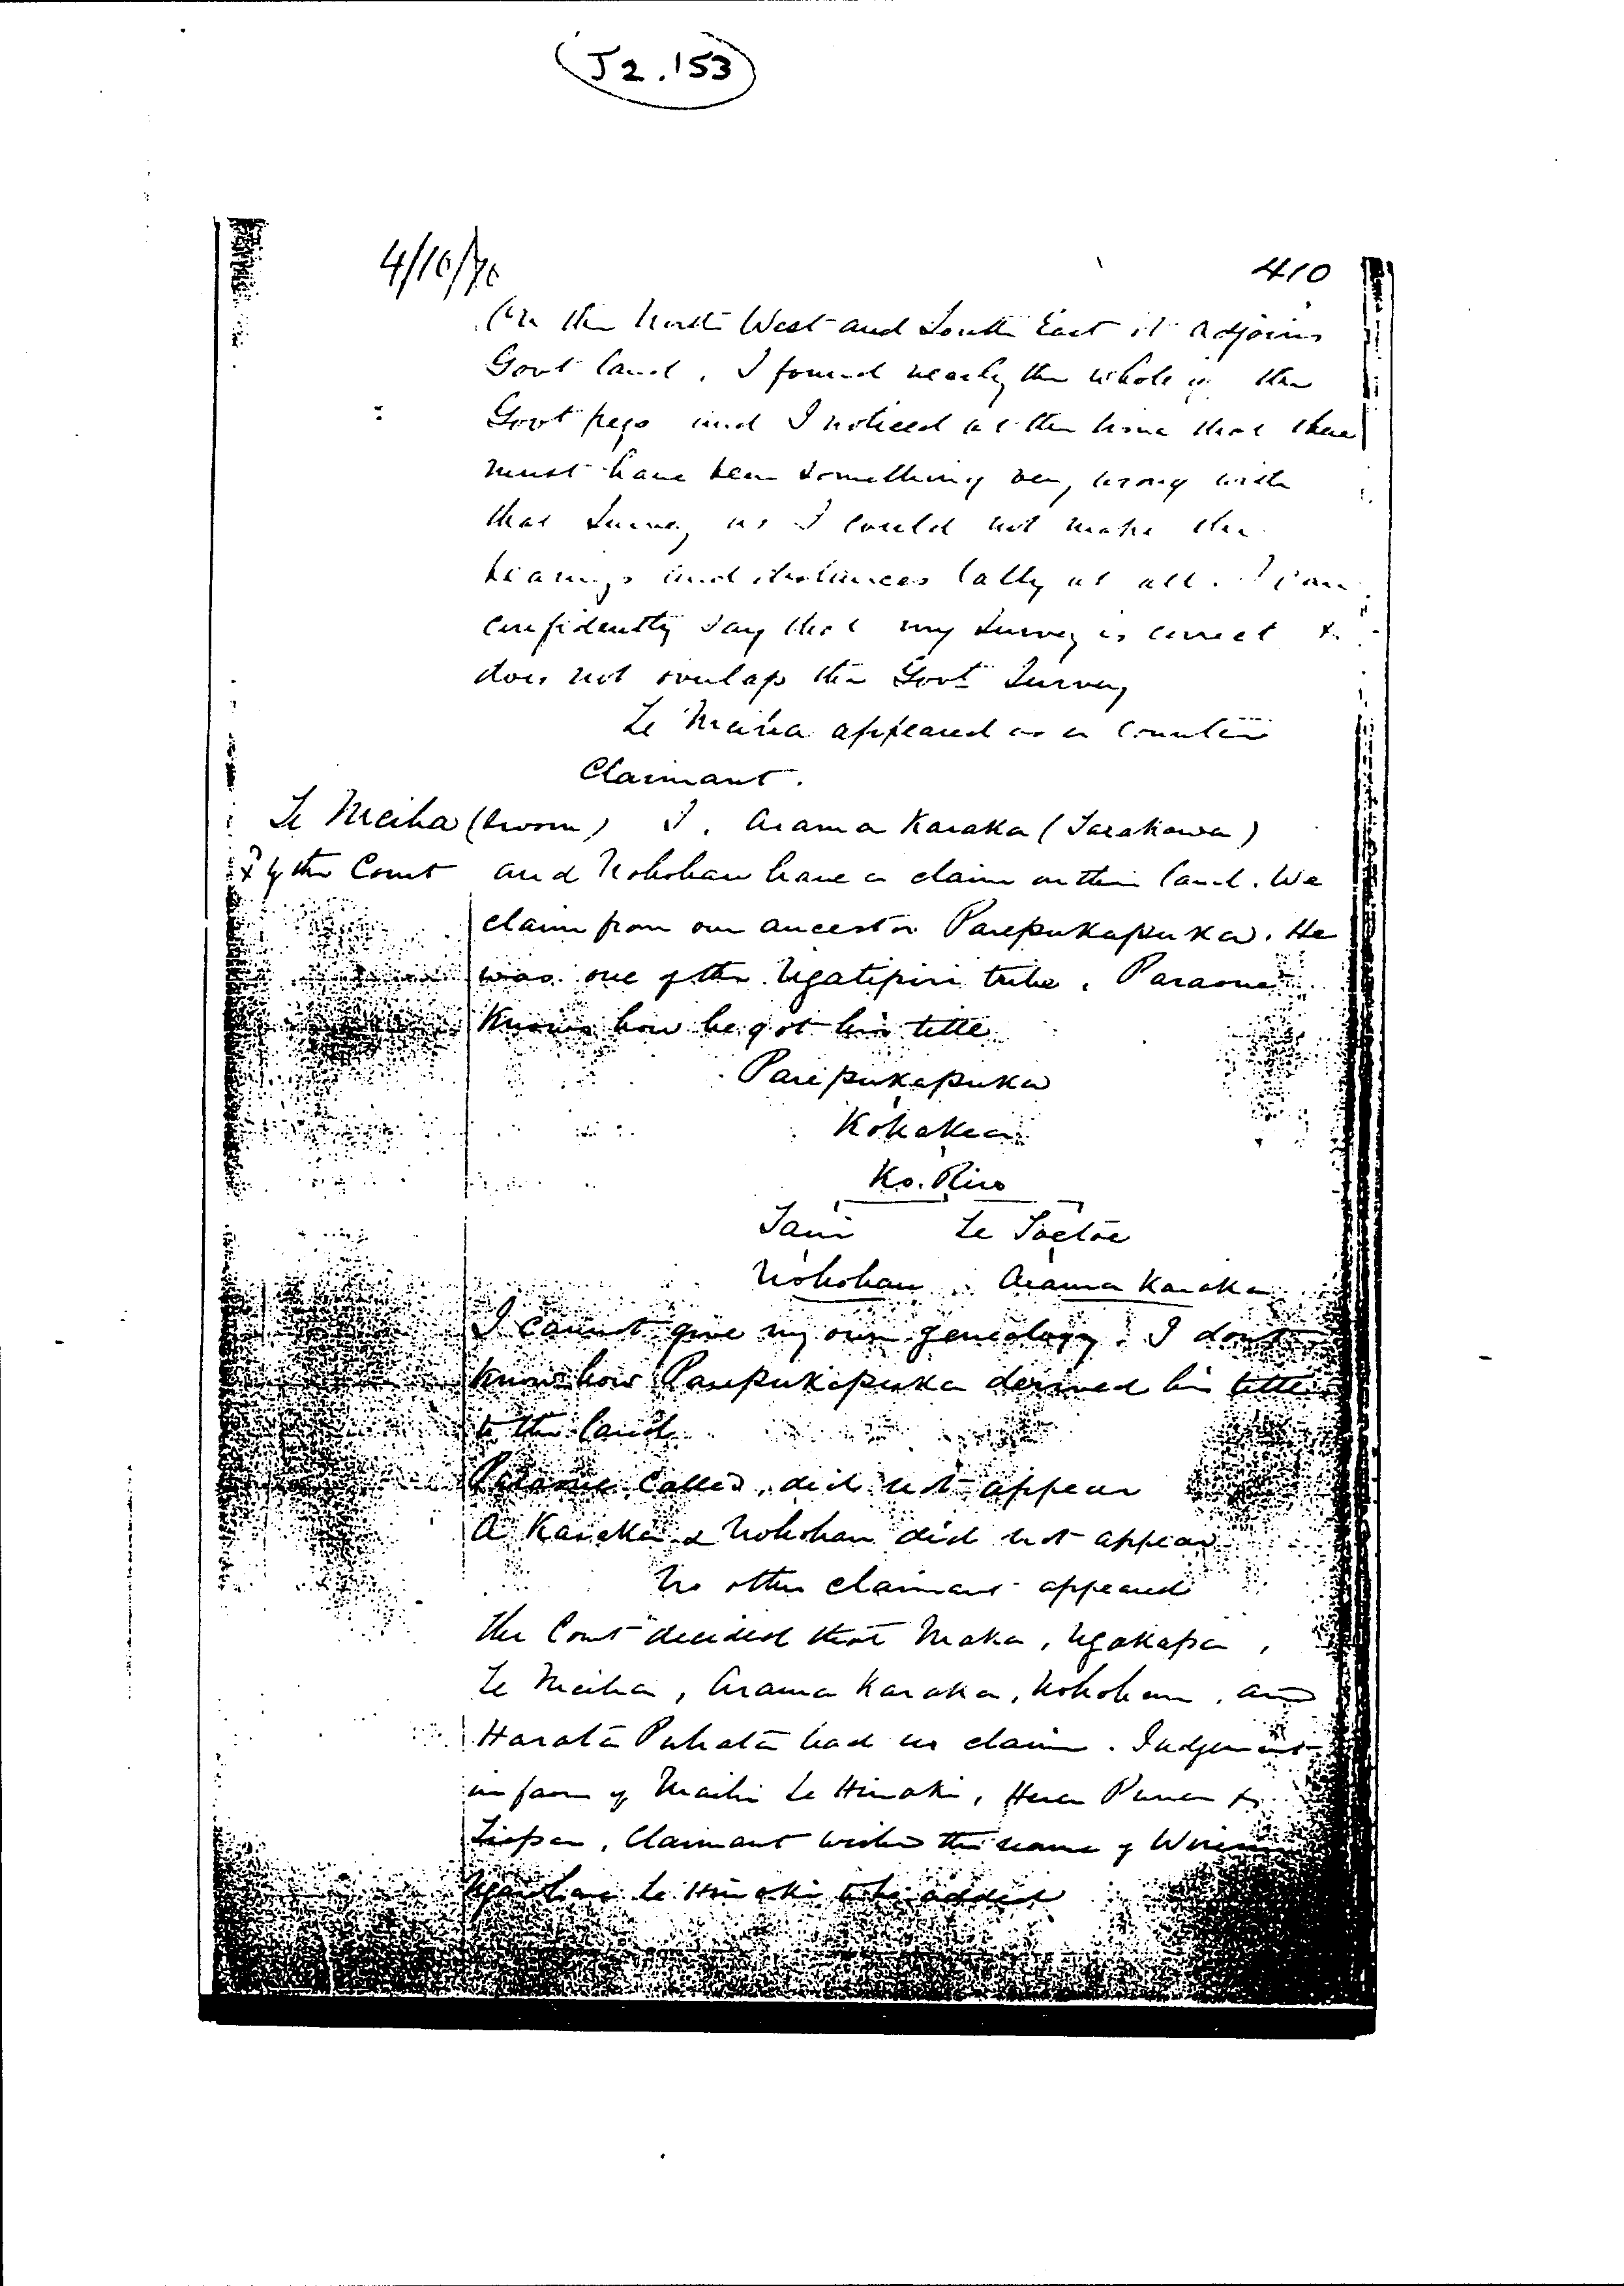 J2.153
4/10/70
410
On the North West and South East it adjoins
Govt land. I found nearly the whole of the
Govt pegs and I noticed at the time that there
must have been something very wrong with
that Survey as I could not make the
bearings and distances tally at all. I can
confidently say that my Survey is correct &
does not overlap the Govt Survey
Te Meiha appeared as a Counter
Claimant.
Te Meiha (Sworn) I, Arama Karaka (Tarakawa)
X by the Court and Nohohau have a claim on this land. We
claim from our ancestor Parepukapuka. He
was one of the Ngatipiri tribe. Paraone
Knows how he got his title
Parepukapuka
Kohakea
Ko. Riro
Tani Te Toetoe
Nohohau Arama Karaka
I cannot give my own genealogy. I dont
Know how Parepukapuka derived his title
to the land
Paraone called, did not appear
A Karaka & Nohohau did not appear
No other claimant appeared
The Court decided that Maka, Ngakapa,
Te Meiha, Arama Karaka, Nohohau, and
Harata Patata had no claim. Judgement
in favor of Maihi Te Hinaki, Hera Puna &
Claimant wishes the name of
Te Hinaki to be added